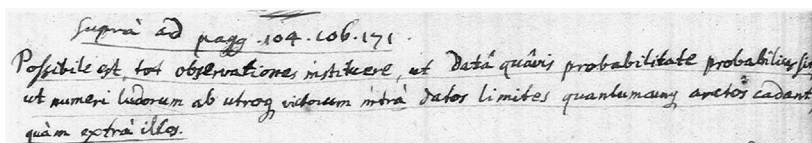 Suprà ad pagg. 104. 106. 171.
Possibile est, tot observationes instituere, ut datâ quâvis probabilitate probabilius sit
ut numeri ludorum ab utroq victorum intrà datos limites quantumcunq arctos cadant,
quàm extrà illos.